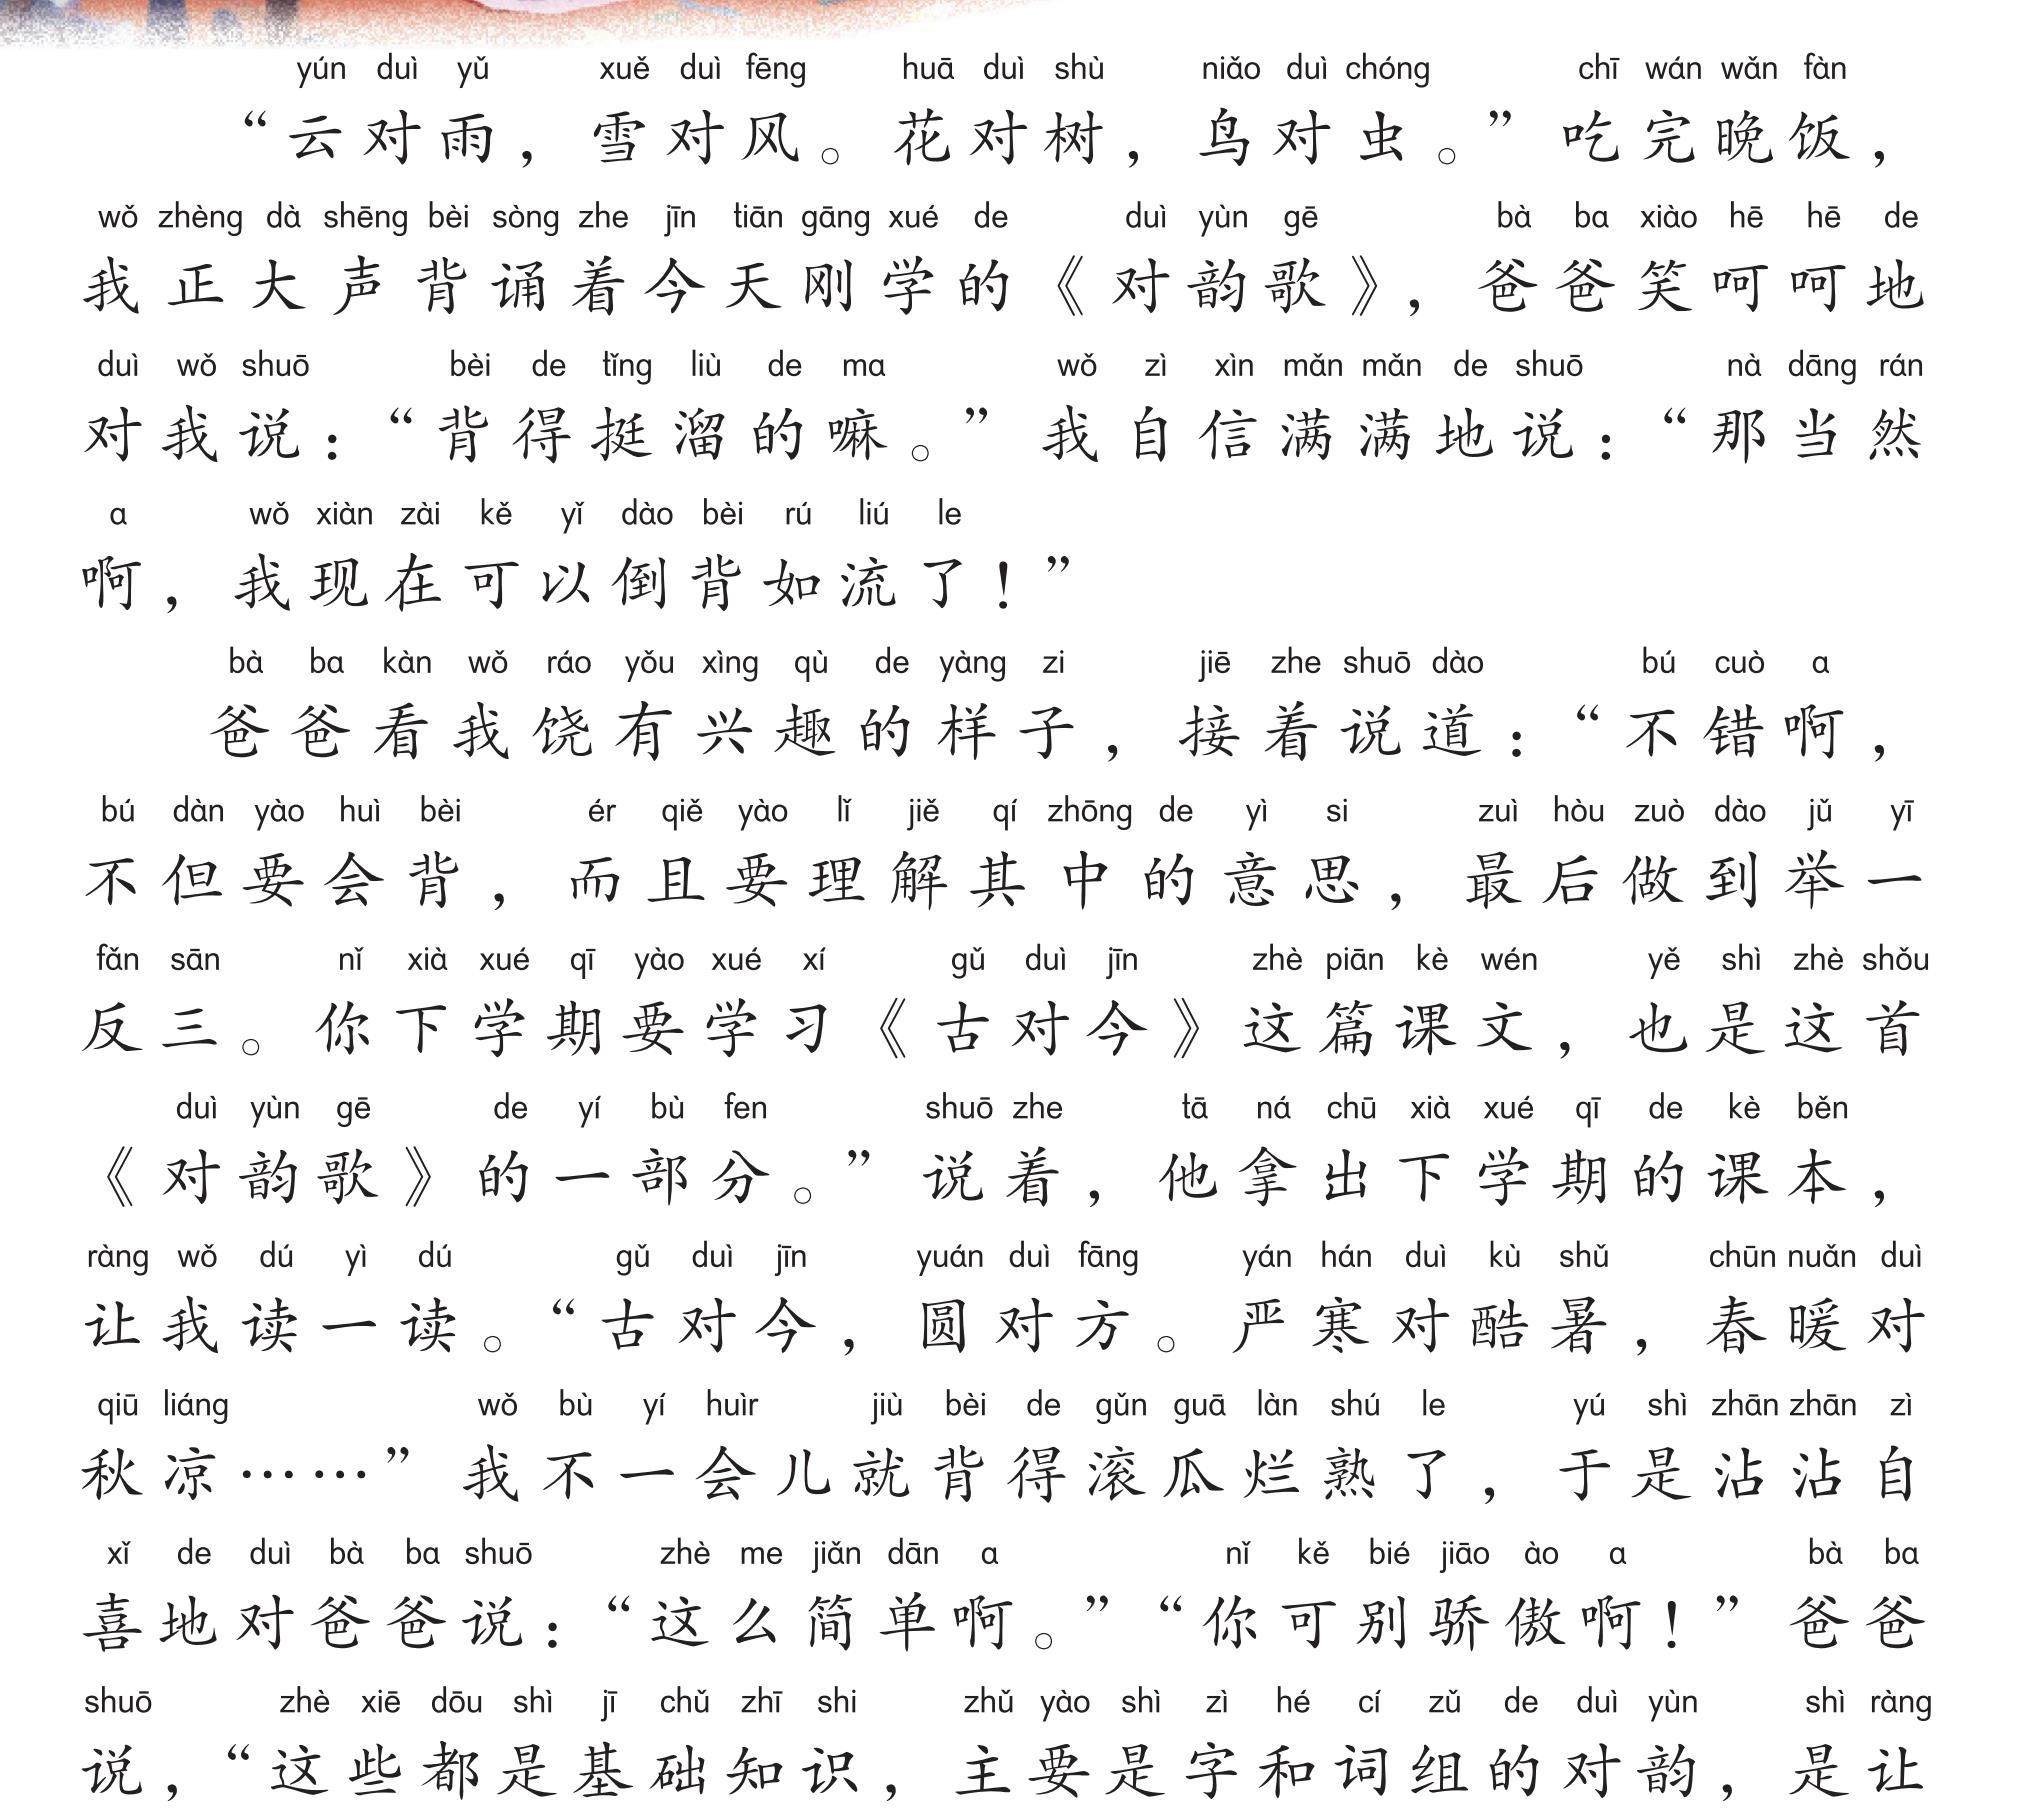 yún duì yǔ xuě duì fēng huā duì shù niǎo duì chóng chī wán wǎn fàn
“云对雨，雪对风。花对树，鸟对虫。”吃完晚饭，
wǒ zhèng dà shēng bèi sòng zhe jīn tiān gāng xué de duì yùn gē bà ba xiào hē hē de
我正大声背诵着今天刚学的《对韵歌》，爸爸笑呵呵地
duì wǒ shuō bèi de tǐng liù de ma wǒ zì xìn mǎn mǎn de shuō nà dāng rán
对我说：“背得挺溜的嘛。”我自信满满地说：“那当然
a wǒ xiàn zài kě yǐ dào bèi rú liú le
啊，我现在可以倒背如流了！”
bà ba kàn wǒ ráo yǒu xìng qù de yàng zi jiē zhe shuō dào bú cuò a
爸爸看我饶有兴趣的样子，接着说道：“不错啊，
bú dàn yào huì bèi ér qiě yào lǐ jiě qí zhōng de yì si zuì hòu zuò dào jǔ yī
不但要会背，而且要理解其中的意思，最后做到举一
fǎn sān nǐ xià xué qī yào xué xí gǔ duì jīn zhè piān kè wén yě shì zhè shǒu
反三。你下学期要学习《古对今》这篇课文，也是这首
duì yùn gē de yí bù fen shuō zhe tā ná chū xià xué qī de kè běn
《对韵歌》的一部分。”说着，他拿出下学期的课本，
ràng wǒ dú yì dú gǔ duì jīn yuán duì fāng yán hán duì kù shǔ chūn nuǎn duì
让我读一读。“古对今，圆对方。严寒对酷暑，春暖对
qiū liáng wǒ bù yí huìr jiù bèi de gǔn guā làn shú le yú shì zhān zhān zì
秋凉……”我不一会儿就背得滚瓜烂熟了，于是沾沾自
xǐ de duì bà ba shuō zhè me jiǎn dān a nǐ kě bié jiāo ào a bà ba
喜地对爸爸说：“这么简单啊。”“你可别骄傲啊！”爸爸
shuō zhè xiē dōu shì jī chǔ zhī shi zhǔ yào shì zì hé cí zǔ de duì yùn shì ràng
说，“这些都是基础知识，主要是字和词组的对韵，是让